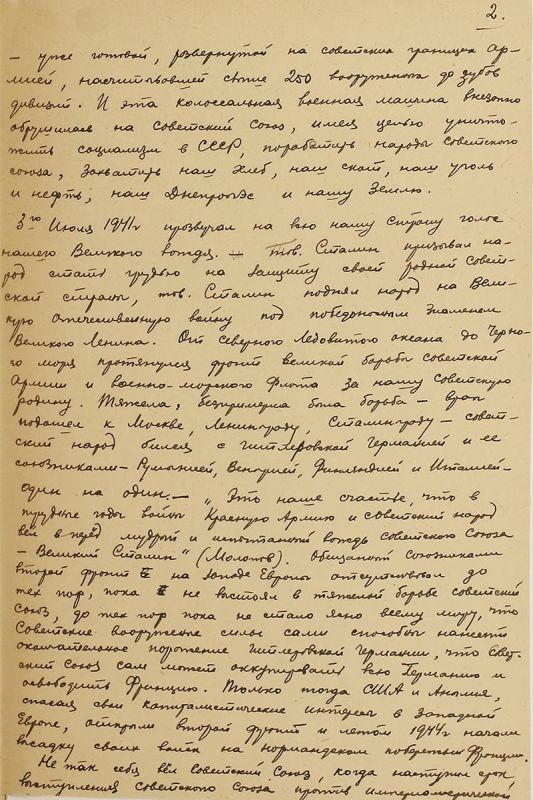 2.
— уже готовой, развернутой на советских границах ар-
мией, насчитывавшей свыше 250 вооруженных до зубов
дивизий. И эта колоссальная военная машина внезапно
обрушилась на Советский Союз, имея целью уничто-
жить социализм в СССР, поработить народы Советского
союза, захватить наш хлеб, наш скот, наш уголь
и нефть, наш Днепрогэс и нашу землю.
3го Июля 1941г прозвучал на всю нашу страну голос
нашего Великого вождя. — Тов. Сталин призывал на-
род стать грудью на защиту своей родной Совет-
ской страны, тов. Сталин поднял народ на Вели-
кую отечественную войну под победоносным знаменем
Великого Ленина. От Северного Ледовитого океана до Черно-
го моря протянулся фронт великой борьбы советской
Армии и военно-морского флота за нашу Советскую
родину. Тяжела, беспримерна была борьба — враг
подошел к Москве, Ленинграду, Сталинграду — совет-
ский народ бился с гитлеровской Германией и ее
союзниками — Румынией, Венгрией, Финляндией и Италией —
один на один. — „Это наше счастье, что в
трудные годы войны Красную Армию и советский народ
вёл вперёд мудрый и испытанный вождь Советского Союза
— Великий Сталин" (Молотов). Обещанный союзниками
второй фронт на Западе Европы отсутствовал до
тех пор, пока не выстоял в тяжелой борьбе советский
Союз, до тех пор пока не стало ясно всему миру, что
Советские вооруженные силы сами способны нанести
окончательное поражение гитлеровской Германии, что Совет-
ский Союз сам может оккупировать всю Германию и
освободить Францию. Только тогда США и Англия,
спасая свои капиталистические интересы в Западной
Европе, открыли второй фронт и летом 1944г начали
высадку своих войск на нормандском побережьи Франции.
Не так себя вёл Советский Союз, когда наступил срок
выступления Советского Союза против